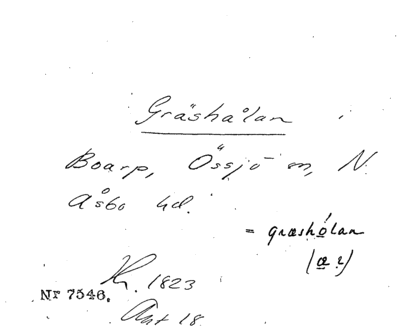 Gräshålan
Boarp, Össjö sn, N.
Åsbo hd.
= græshólan
(æ
1823
Nr 7546.
Akt 18